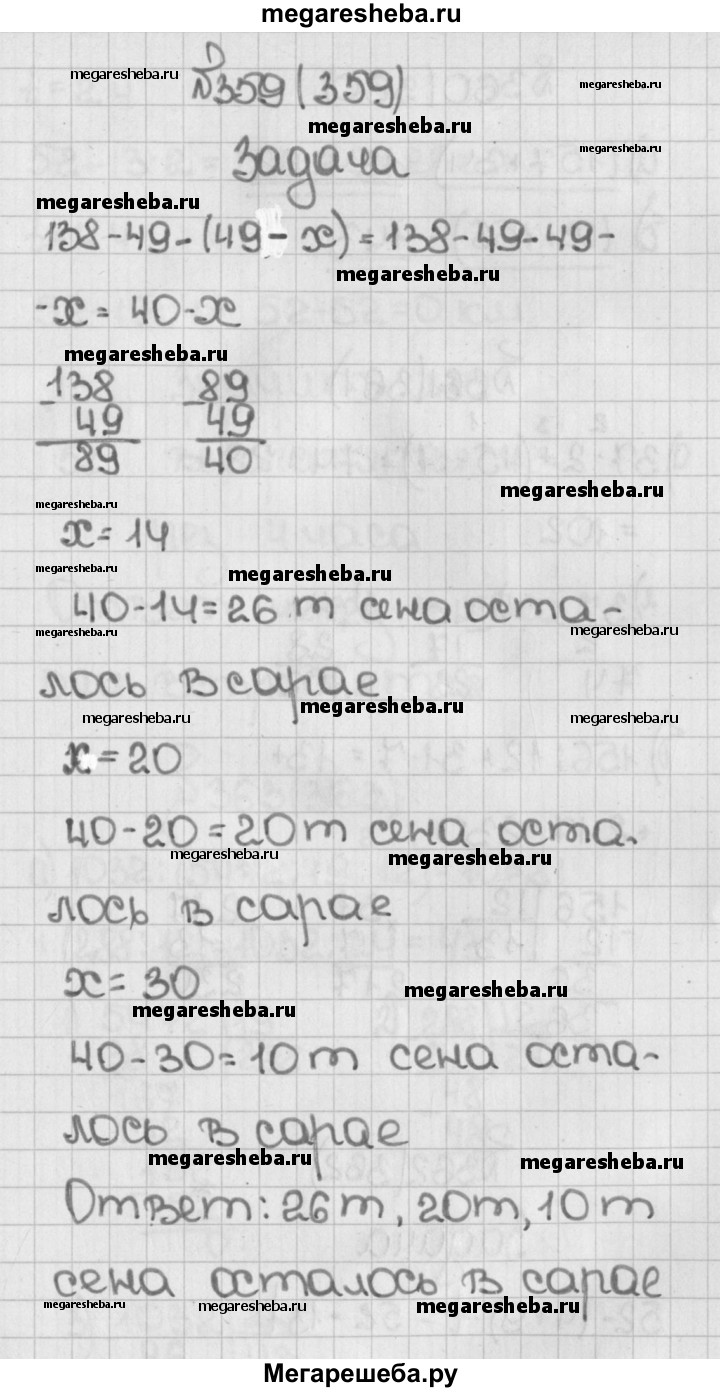 megaresheba.ru
№359 (359)
megaresheba.ru
megaresheba.ru
megaresheba.ru
Задача
megaresheba.ru
megaresheba.ru
138-49-(49-x)=138-49-49-
megaresheba.ru
-x=40-x
megaresheba.ru
138 89
- 49 - 49
89 40
megaresheba.ru
megaresheba.ru
x=14
megaresheba.ru
megaresheba.ru
40-14=26 т сена оста-
megaresheba.ru
megaresheba.ru
лось в сарае
megaresheba.ru
megaresheba.ru
megaresheba.ru
x=20
40-20=20 т сена оста-
megaresheba.ru
megaresheba.ru
лось в сарае
x=30
megaresheba.ru
megaresheba.ru
40-30=10 т сена оста-
лось в сарае
megaresheba.ru
megaresheba.ru
Ответ: 26 т, 20 т, 10 т
сена осталось в сарае
megaresheba.ru
megaresheba.ru
megaresheba.ru
Мегарешеба.ру